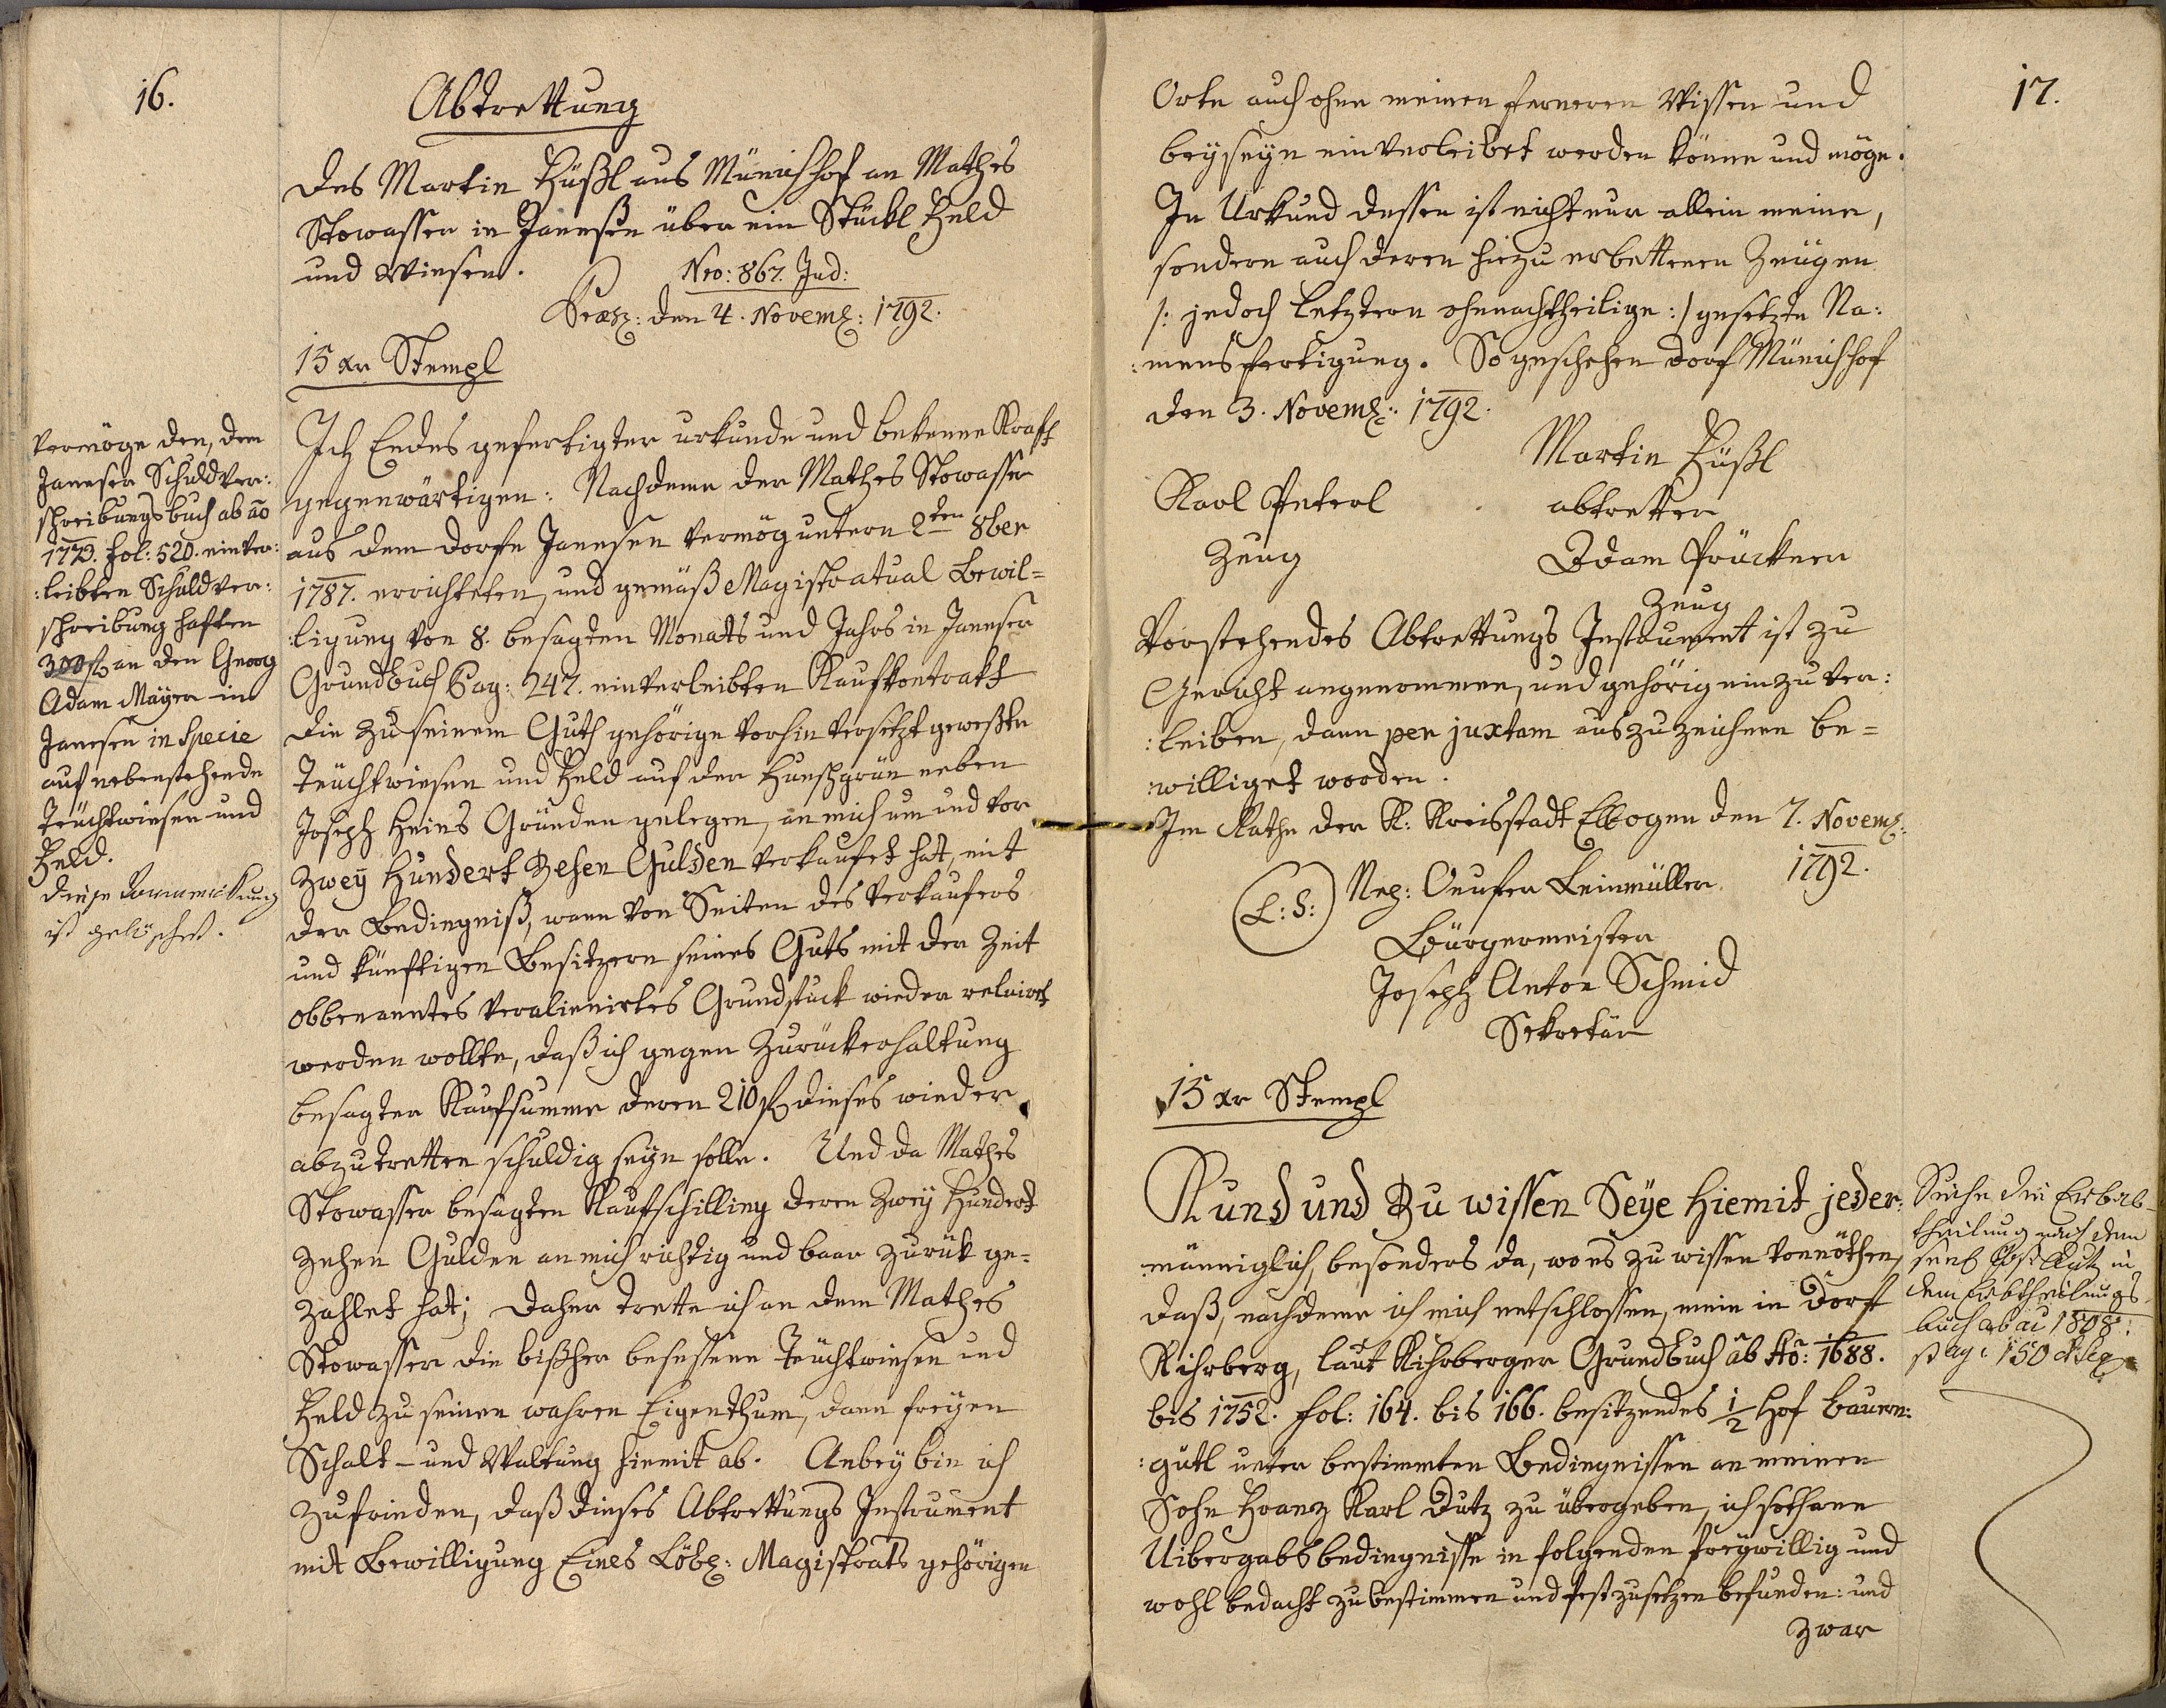 16.
Abtrettung
des Martin Hüßl aus Münichhof an Mathes
Stowasser in Janesen über ein Stückl Feld
und Wiesen.
Nro: 867. Jud:
Præs: den 4. Novemb: 1792.
15 xr Stempl
Ich Endes gefertigter urkunde und bekenne Kraft
gegenwärtigen: Nachdeme der Mathes Stowasser
aus dem Dorfe Janesen vermög untern 2ten 8ber
1787. errichteten, und gemäß Magistratual Bewil=
:ligung von 8. besagten Monats und Jahrs in Janeser
Grundbuch Pag: 247. einverleibten Kaufkontrakt
die zu seinem Guth gehörige vorhin versetzt geweßte
Teüchtwiesen und Feld auf der Huschgrün neben
Joseph Heins Gründen gelegen, an mich um und vor
Zwey Hundert Zehen Gulden verkaufet hat, mit
der Bedingniß, wann von Seiten des Verkaufers
und künftigen Besitzern seines Guts mit der Zeit
obbenanntes veralienirtes Grundstuck wieder reluirt
werden wollte, daß ich gegen Zurückerhaltung
besagter Kaufsumme deren 210 f dieses wieder
abzutretten schuldig seyn solle. Und da Mathes
Stowasser besagten Kaufschilling deren Zwey Hundert
Zehen Gulden an mich richtig und baar zurük ge=
zahlet hat; Daher trette ich an dem Mathes
Stowasser die bißher besessene Teüchtwiesen und
Feld zu seinen wahren Eigenthum, dann freyen
Schalt- und Waltung hiemit ab. Anbey bin ich
zufrieden, daß dieses Abtrettungs Instrument
mit Bewilligung Eines Löbl: Magistrats gehörigen
Vermöge den, dem
Janeser Schuldver:
schreibungsbuch ab ao
1773. fol: 520. einver:
:leibten Schuldver:
schreibung haften
300 f an den Georg
Adam Mayer in
Janesen in Specie
auf nebenstehende
Teüchtwiesen und
Feld.
Diese
ist gelöschet.
17.
Orte auch ohne meinen ferneren Wissen und
beyseyn einverleibet werden könne und möge.
In Urkund dessen ist nicht nur allein meine,
sondern auch deren hiezu erbettenen Zeügen
/: jedoch letztern ohnnachtheilige :/ gesetzte Na:
:mensfertigung. So geschehen Dorf Münichhof
den 3. Novemb: 1792.
Martin Hüßl
abtretter
Karl Peterl
Zeug
Adam Prückner
Zeug
Vorstehendes Abtrettungs Instrument ist zu
Gericht angenommen, und gehörig einzuver:
:leiben, dann per juxtam auszuzeichnen be=
:williget worden.
Im Rathe der K: Kreisstadt Elbogen den 7. Novemb:
1792.
(L: S:)
Bürgermeister
Joseph Anton Schmid
Sekretär
15 xr Stempl
Kund und Zu wissen Seye Hiemit jeder:
:männiglich, besonders da, wo es zu wissen vonnöthen,
daß, nachdeme ich mich entschlossen, mein in Dorf
Kihrberg, laut Kihrberger Grundbuch ab Ao: 1688.
bis 1752. fol: 164. bis 166. besitzendes 1/2 Hof Bauern:
:gütl unter bestimmten Bedingnissen an meinen
Sohn Franz Karl Dutz zu übergeben, ich sothane
Uibergabsbedingnisse in folgenden freywillig und
wohl bedacht zu bestimmen und fest zusetzen befunden: und
zwar
Siehe die Erbab-
theilung nach dem
in
dem Erbtheilungs-
buch ab ao 1808:
pag: 150 et seq